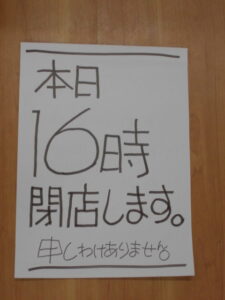 本日
16時
閉店します。
申しわけありません。